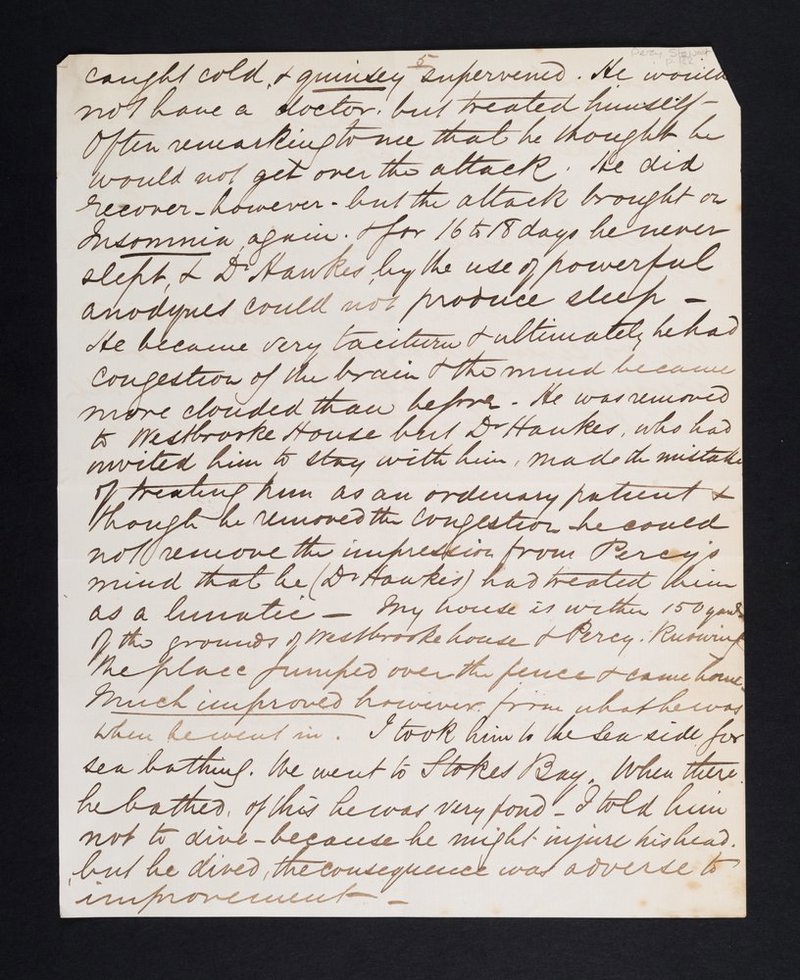 5
caught cold, & quinsey supervened. He would
not have a doctor. but treated himself -
Often remarking to me that he thought he
would not get over the attack. He did
recover - however - but the attack brought on
Insomnia again. & for 16 to 18 days he never
slept, & Dr Hawkes, by the use of powerful
anodynes could not produce sleep -
He became very taciturn & ultimately he had
congestion of the brain & the mind became
more clouded than before. He was removed
to Westbrooke House but Dr Hawkes, who had
invited him to stay with him, made the mistake
of treating him as an ordenary patient &
though he removed the congestion he could
not remove the impression from Percy's
mind that he (Dr Hawkes) had treated him
as a lunatic - My house is within 150 yards
of the grounds of Westbrooke house & Percy. Knowing
the place jumped over the fence & came home.
Much improved however. from what he was
when he went in. I took him to the sea side for
sea bathing. We went to Stokes Bay. When there
he bathed, of this he was very fond - I told him
not to dive - because he might injure his head.
but he dived, the consequence was adverse to
improvement -